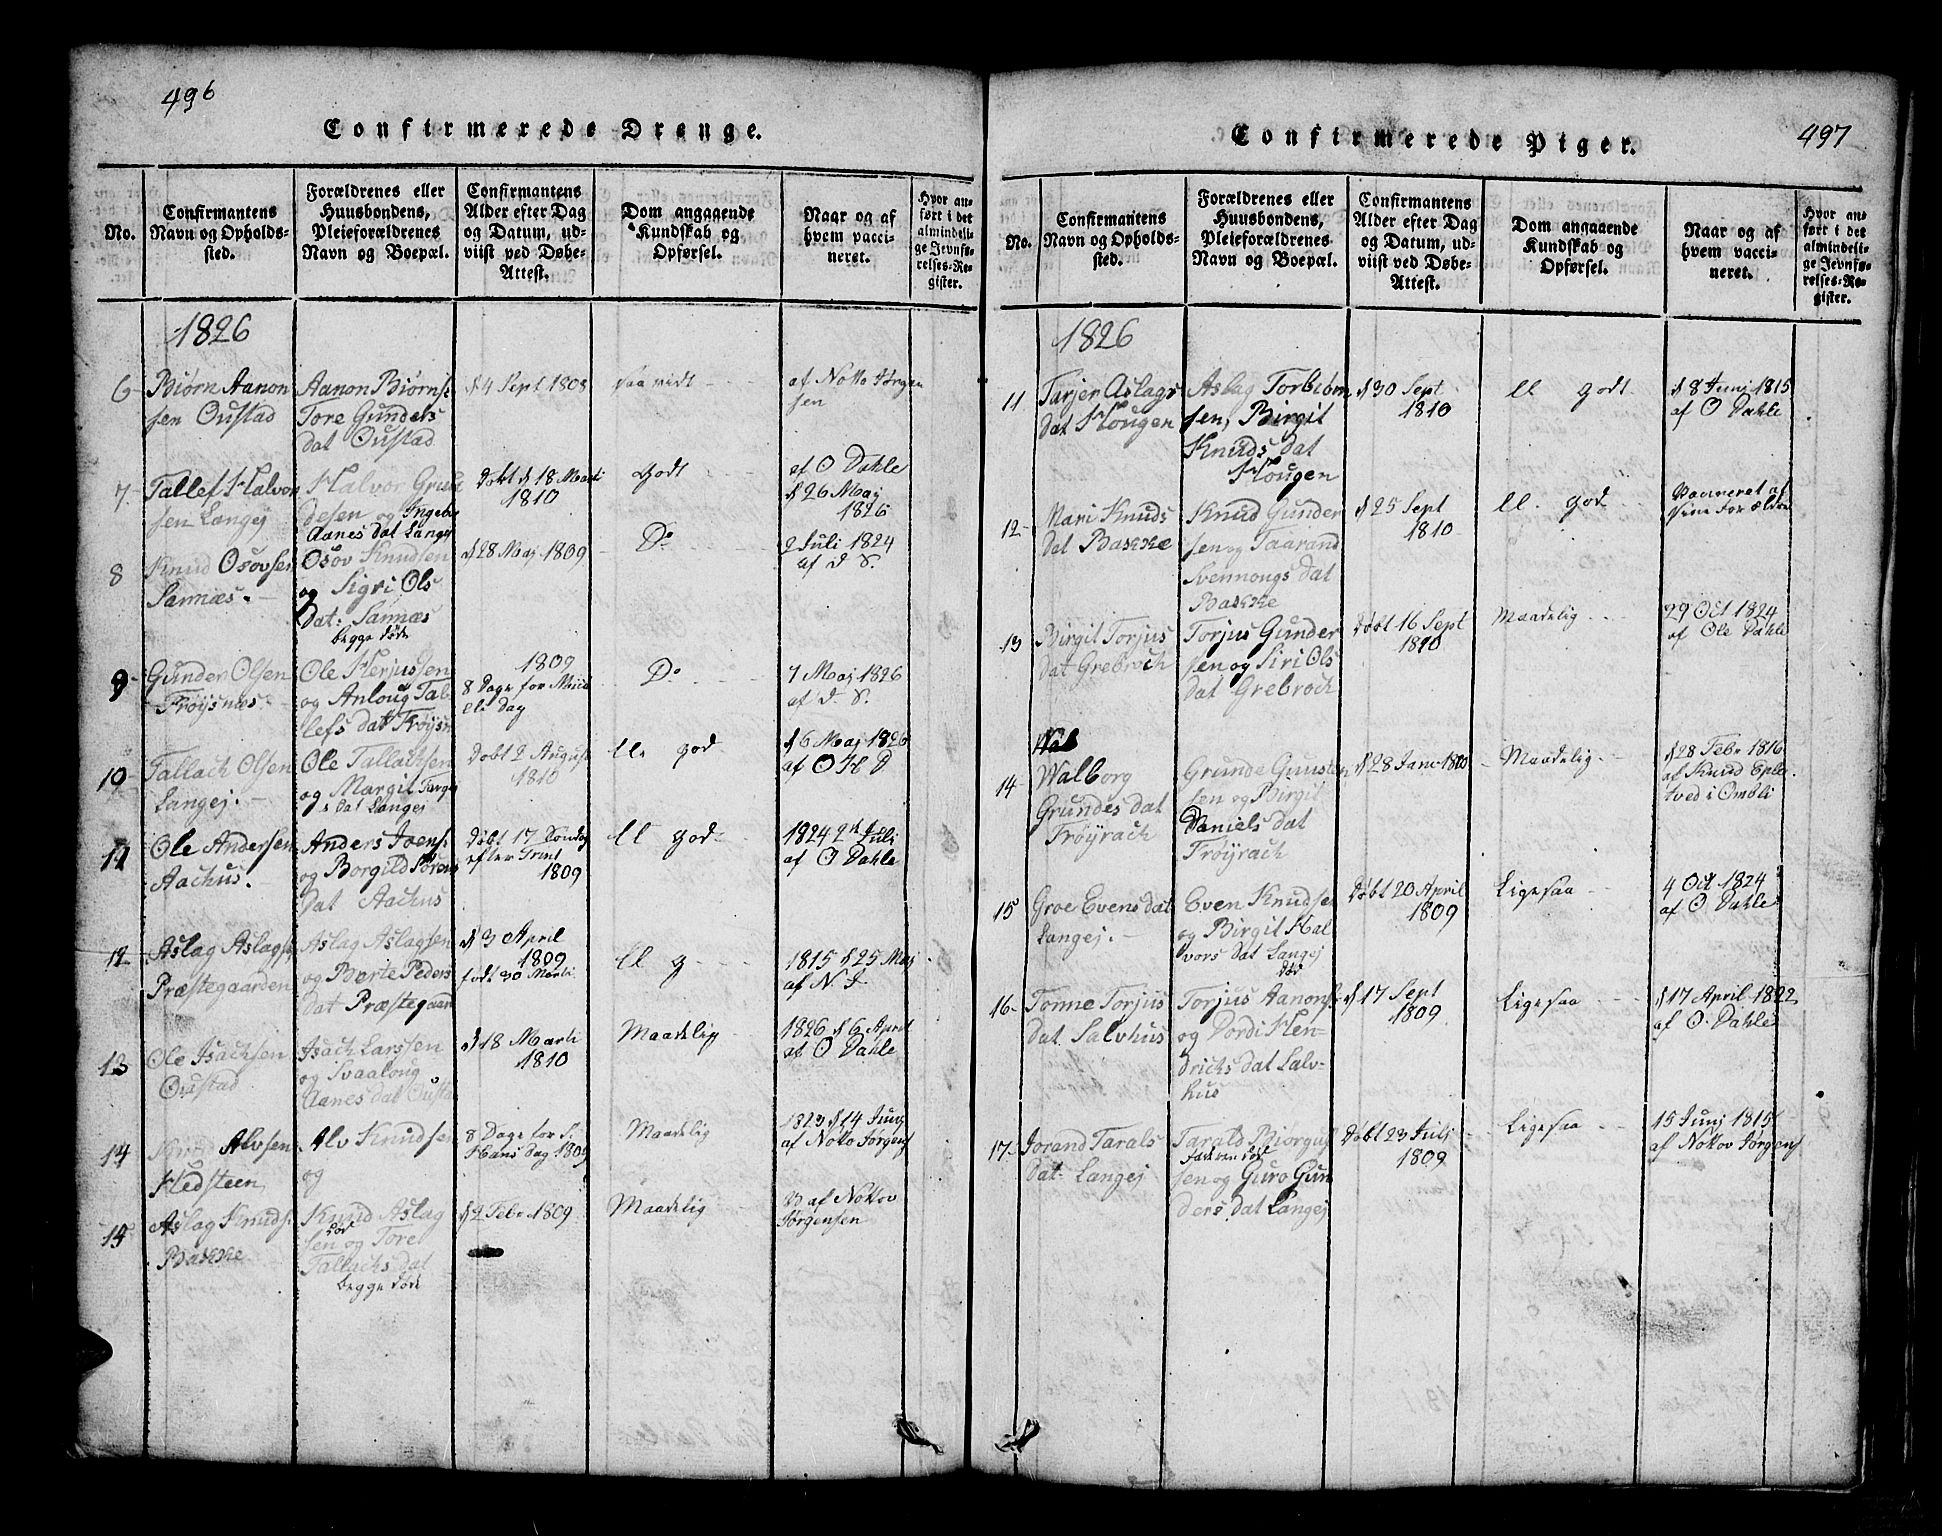 496
Confirmerede Drenge.
No.
Confirmantens
Navn og Opholds-
sted.
Forældrenes eller
Huusbondens,
Pleieforældrenes
Navn og Boepæl.
Confirmantens
Alder efter Dag
og Datum, ud-
viist ved Døbe-
Attest.
Dom angaaende
Kundskab og
Opførsel.
Naar og af
hvem vacci-
neret.
Hvor an-
ført i det
almindeli-
ge Jevnfø-
relses-Re-
gister.
1826
6 Biørn Aanon
sen Oustad
Aanon Biørns
Tore Gunders
dat Oustad
d 4 Sept 1808
saa vidt
af Notto Jørgen
sen
7 Tallef Halvor
sen Langej
Halvor Grun
desen og Ingebor
Aanes dat Langej
Døbt d 18 Marti
1810
Godt
af O Dahle
d 26 Maj
1826
8 Knud Osovsen
Sannæs.
Osov Knudsen
og Sigri Ols
Dat: Sannæs
begge døde
d 28 Maj 1809
Do
2 Juli 1824
af d S.
9 Gunder Olsen
Frøysnæs
Ole Herjussen
og Anloug Tal
lefs dat Frøysn
1809
8 Dage for Mica
eli Dag
Do
7 Maj 1826
af d. S.
10 Tallach Olsen
Langej.
Ole Tallachsen
og Margit Targe
s Dat Langej
Døbt 2 August
1810
ll. god
d 6 Maj 1826
af O H D
11 Ole Andersen
Aachus.
Anders Joens.
og Borgild Sørens
Dat Aachus
Døbt 17 Søndag
efter Trint
1809
ll god
1824 2 Juli
af O Dahle
12 Aslag Aslags
Præstegaarden
Aslag Aslagsen
og Berte Peders
dat Præstegaar
d 3 April
1809
født 30 Marti
ll g
1815 d 25 Maj
af N J
13 Ole Isachsen
Oustad
Isach Larssen
og Svaalong
Aanes dat Ousta
d 18 Marti
1810
Maadelig
1826 d 6 April
af O Dahle
14 Alvsen
Hedsteen
Alv Knudsen
og
8 Dage for S.
Hans Dag 1809
Maadelig
1823 d 14 Junj
af Notto Jørgens
15 Aslag Knuds.
Bakke
Knud Aslag
død
sen og Tore
Tallachs dat
begge døde
d 2 Febr 1809
Maadelig
af Nottov
Jørgensen
497
Confirmerede Piger.
No.
Confirmantens
Navn og Opholds-
sted.
Forældrenes eller
Huusbondens,
Pleieforældrenes
Navn og Boepæl.
Confirmantens
Alder efter Dag
og Datum, ud-
viist ved Døbe-
Attest.
Dom angaaende
Kundskab og
Opførsel.
Naar og af
hvem vacci-
neret.
Hvor an-
ført i det
almindeli-
ge Jevnfø-
relses-Re-
gister.
1826
11 Tarjer Aslags
Dat Hougen
Aslag Torbiørn
sen, Birgit
Knuds dat
Hougen
d 30 Sept
1810
ll godt
d 8 Juni 1815
af O Dahle
12 Mari Knuds
Dat Bakke
Knud Gunder
sen og Taarand
Svennongs dat
Bakke
d 25 Sept
1810
ll. god
af
sine Forældre
13 Birgit Torjus
dat Grebroch
Torjus Gunder
sen og Siri Ols
dat Grebroch
Døbt 16 Sept
1810
Maadelig
29 Oct 1824
af Ole Dahle
Wal
14 Walborg
Grundes dat
Frøyrach
Grunde Guusten
sen og Birgit
Daniels dat
Frøyrach
d 28 Janu 1810
Maadelig
d 28 Febr 1816
af Knud Eple
tved i Ombli
15 Groe Evens dat
Langej.
Even Knudsen
og Birgit Hal
vors dat Langej
død
Døbt 20 April
1809
Ligesaa
4 Oct 1824
af O Dahle
16 Tonne Torjus
dat. Salvhus
Torjus Aanons
og Dordi Hen-
drichs dat Salv-
hus
d 17 Sept
1809
Ligesaa
d 17 April 1822
af O. Dahle
17 Jorand Tarals
Dat. Langej
Tarald Biørguf
Faderen død
sen og Guro Gun
ders dat Langej
Døbt 23 Julj
1809
Ligesaa
15 Junj 1815
af Nottov Jørgens